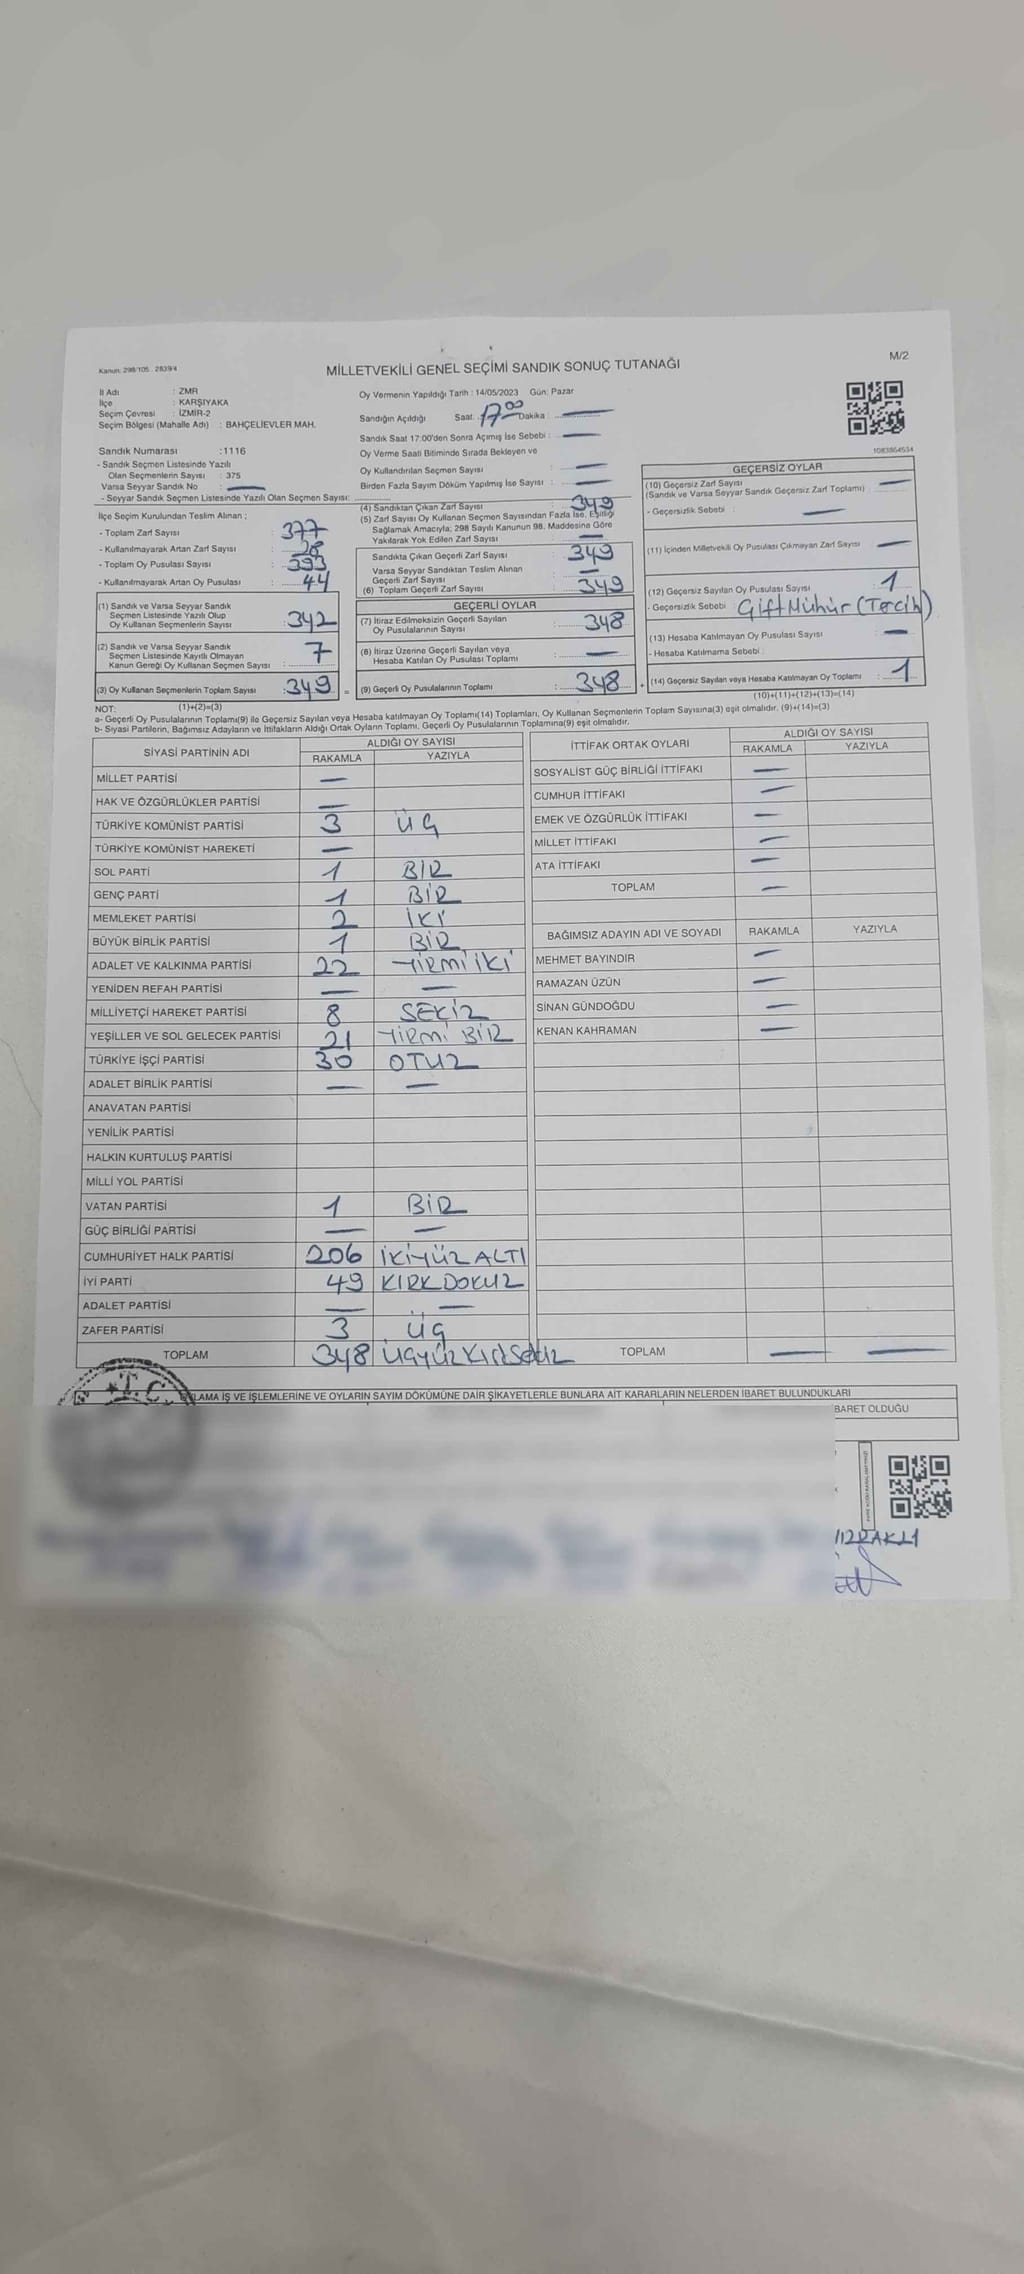 Kanun: 298/105 . 2839/4
MİLLETVEKİLİ GENEL SEÇİMİ SANDIK SONUÇ TUTANAĞI
M/2
İl Adı : ZMR
İlçe : KARŞIYAKA
Seçim Çevresi : İZMİR-2
Seçim Bölgesi (Mahalle Adı) : BAHÇELİEVLER MAH.
Sandık Numarası :1116
- Sandık Seçmen Listesinde Yazılı
Olan Seçmenlerin Sayısı : 375
Varsa Seyyar Sandık No : —
- Seyyar Sandık Seçmen Listesinde Yazılı Olan Seçmen Sayısı:
Oy Vermenin Yapıldığı Tarih : 14/05/2023 Gün: Pazar
Sandığın Açıldığı Saat: 17 00 Dakika : —
Sandık Saat 17:00'den Sonra Açımış İse Sebebi : —
Oy Verme Saati Bitiminde Sırada Bekleyen ve
Oy Kullandırılan Seçmen Sayısı : —
Birden Fazla Sayım Döküm Yapılmış İse Sayısı : —
1083864534
İlçe Seçim Kurulundan Teslim Alınan ;
- Toplam Zarf Sayısı : 377
- Kullanılmayarak Artan Zarf Sayısı : 28
- Toplam Oy Pusulası Sayısı : 393
- Kullanılmayarak Artan Oy Pusulası : 44
(1) Sandık ve Varsa Seyyar Sandık
Seçmen Listesinde Yazılı Olup
Oy Kullanan Seçmenlerin Sayısı : 342
(2) Sandık ve Varsa Seyyar Sandık
Seçmen Listesinde Kayıtlı Olmayan
Kanun Gereği Oy Kullanan Seçmen Sayısı : 7
(3) Oy Kullanan Seçmenlerin Toplam Sayısı : 349 =
(4) Sandıktan Çıkan Zarf Sayısı : 349
(5) Zarf Sayısı Oy Kullanan Seçmen Sayısından Fazla İse, Eşitliği
Sağlamak Amacıyla; 298 Sayılı Kanunun 98. Maddesine Göre
Yakılarak Yok Edilen Zarf Sayısı : —
Sandıkta Çıkan Geçerli Zarf Sayısı : 349
Varsa Seyyar Sandıktan Teslim Alınan
Geçerli Zarf Sayısı : —
(6) Toplam Geçerli Zarf Sayısı : 349
GEÇERLİ OYLAR
(7) İtiraz Edilmeksizin Geçerli Sayılan
Oy Pusulalarının Sayısı : 348
(8) İtiraz Üzerine Geçerli Sayılan veya
Hesaba Katılan Oy Pusulası Toplamı : —
(9) Geçerli Oy Pusulalarının Toplamı : 348 +
GEÇERSİZ OYLAR
(10) Geçersiz Zarf Sayısı
(Sandık ve Varsa Seyyar Sandık Geçersiz Zarf Toplamı) : —
- Geçersizlik Sebebi : —
(11) İçinden Milletvekili Oy Pusulası Çıkmayan Zarf Sayısı : —
(12) Geçersiz Sayılan Oy Pusulası Sayısı : 1
- Geçersizlik Sebebi : Çift Mühür (Tercih)
(13) Hesaba Katılmayan Oy Pusulası Sayısı : —
- Hesaba Katılmama Sebebi :
(14) Geçersiz Sayılan veya Hesaba Katılmayan Oy Toplamı : 1
NOT: (1)+(2)=(3)
(10)+(11)+(12)+(13)=(14)
a- Geçerli Oy Pusulalarının Toplamı(9) ile Geçersiz Sayılan veya Hesaba katılmayan Oy Toplamı(14) Toplamları, Oy Kullanan Seçmenlerin Toplam Sayısına(3) eşit olmalıdır. (9)+(14)=(3)
b- Siyasi Partilerin, Bağımsız Adayların ve İttifakların Aldığı Ortak Oyların Toplamı, Geçerli Oy Pusulalarının Toplamına(9) eşit olmalıdır.
SİYASİ PARTİNİN ADI ALDIĞI OY SAYISI
RAKAMLA YAZIYLA
MİLLET PARTİSİ —
HAK VE ÖZGÜRLÜKLER PARTİSİ —
TÜRKİYE KOMÜNİST PARTİSİ 3 ÜÇ
TÜRKİYE KOMÜNİST HAREKETİ —
SOL PARTİ 1 BİR
GENÇ PARTİ 1 BİR
MEMLEKET PARTİSİ 2 İKİ
BÜYÜK BİRLİK PARTİSİ 1 BİR
ADALET VE KALKINMA PARTİSİ 22 YİRMİ İKİ
YENİDEN REFAH PARTİSİ — —
MİLLİYETÇİ HAREKET PARTİSİ 8 SEKİZ
YEŞİLLER VE SOL GELECEK PARTİSİ 21 YİRMİ BİR
TÜRKİYE İŞÇİ PARTİSİ 30 OTUZ
ADALET BİRLİK PARTİSİ — —
ANAVATAN PARTİSİ
YENİLİK PARTİSİ
HALKIN KURTULUŞ PARTİSİ
MİLLİ YOL PARTİSİ
VATAN PARTİSİ 1 BİR
GÜÇ BİRLİĞİ PARTİSİ — —
CUMHURİYET HALK PARTİSİ 206 İKİYÜZ ALTI
İYİ PARTİ 49 KIRK DOKUZ
ADALET PARTİSİ — —
ZAFER PARTİSİ 3 ÜÇ
TOPLAM 348 ÜÇYÜZ KIRKSEKİZ
İTTİFAK ORTAK OYLARI ALDIĞI OY SAYISI
RAKAMLA YAZIYLA
SOSYALİST GÜÇ BİRLİĞİ İTTİFAKI —
CUMHUR İTTİFAKI —
EMEK VE ÖZGÜRLÜK İTTİFAKI —
MİLLET İTTİFAKI —
ATA İTTİFAKI —
TOPLAM —
BAĞIMSIZ ADAYIN ADI VE SOYADI RAKAMLA YAZIYLA
MEHMET BAYINDIR —
RAMAZAN ÜZÜN —
SİNAN GÜNDOĞDU —
KENAN KAHRAMAN —
TOPLAM — —
T.C.
LAMA İŞ VE İŞLEMLERİNE VE OYLARIN SAYIM DÖKÜMÜNE DAİR ŞİKAYETLERLE BUNLARA AİT KARARLARIN NELERDEN İBARET BULUNDUKLARI
BARET OLDUĞU